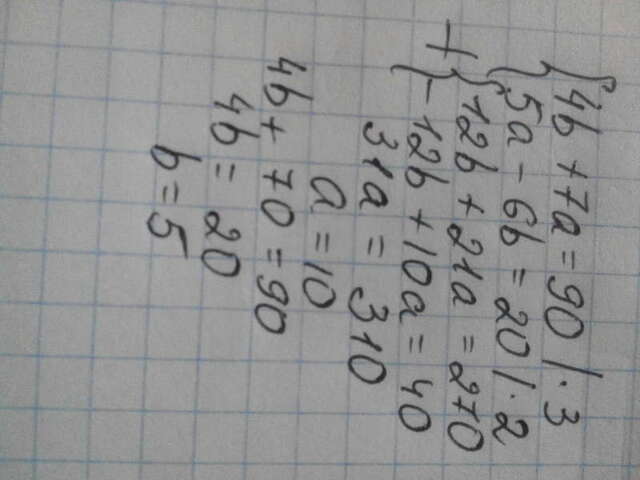 4b + 7a = 90 / · 3
5a - 6b = 20 / · 2
12b + 21a = 270
+
-12b + 10a = 40
31a = 310
a = 10
4b + 70 = 90
4b = 20
b = 5